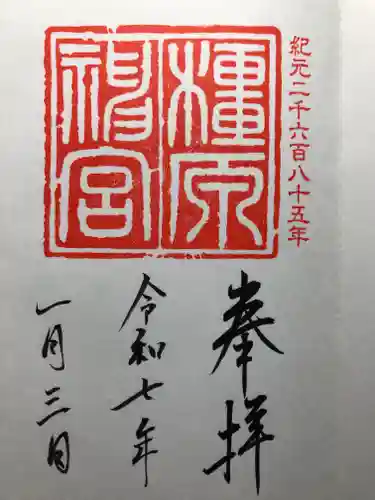 紀元二千六百八十五年
橿原
神宮
奉拝
令和七年
一月三日